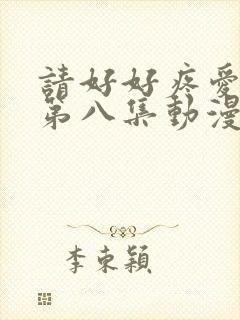 請好好疼愛
第八集動漫
李束穎